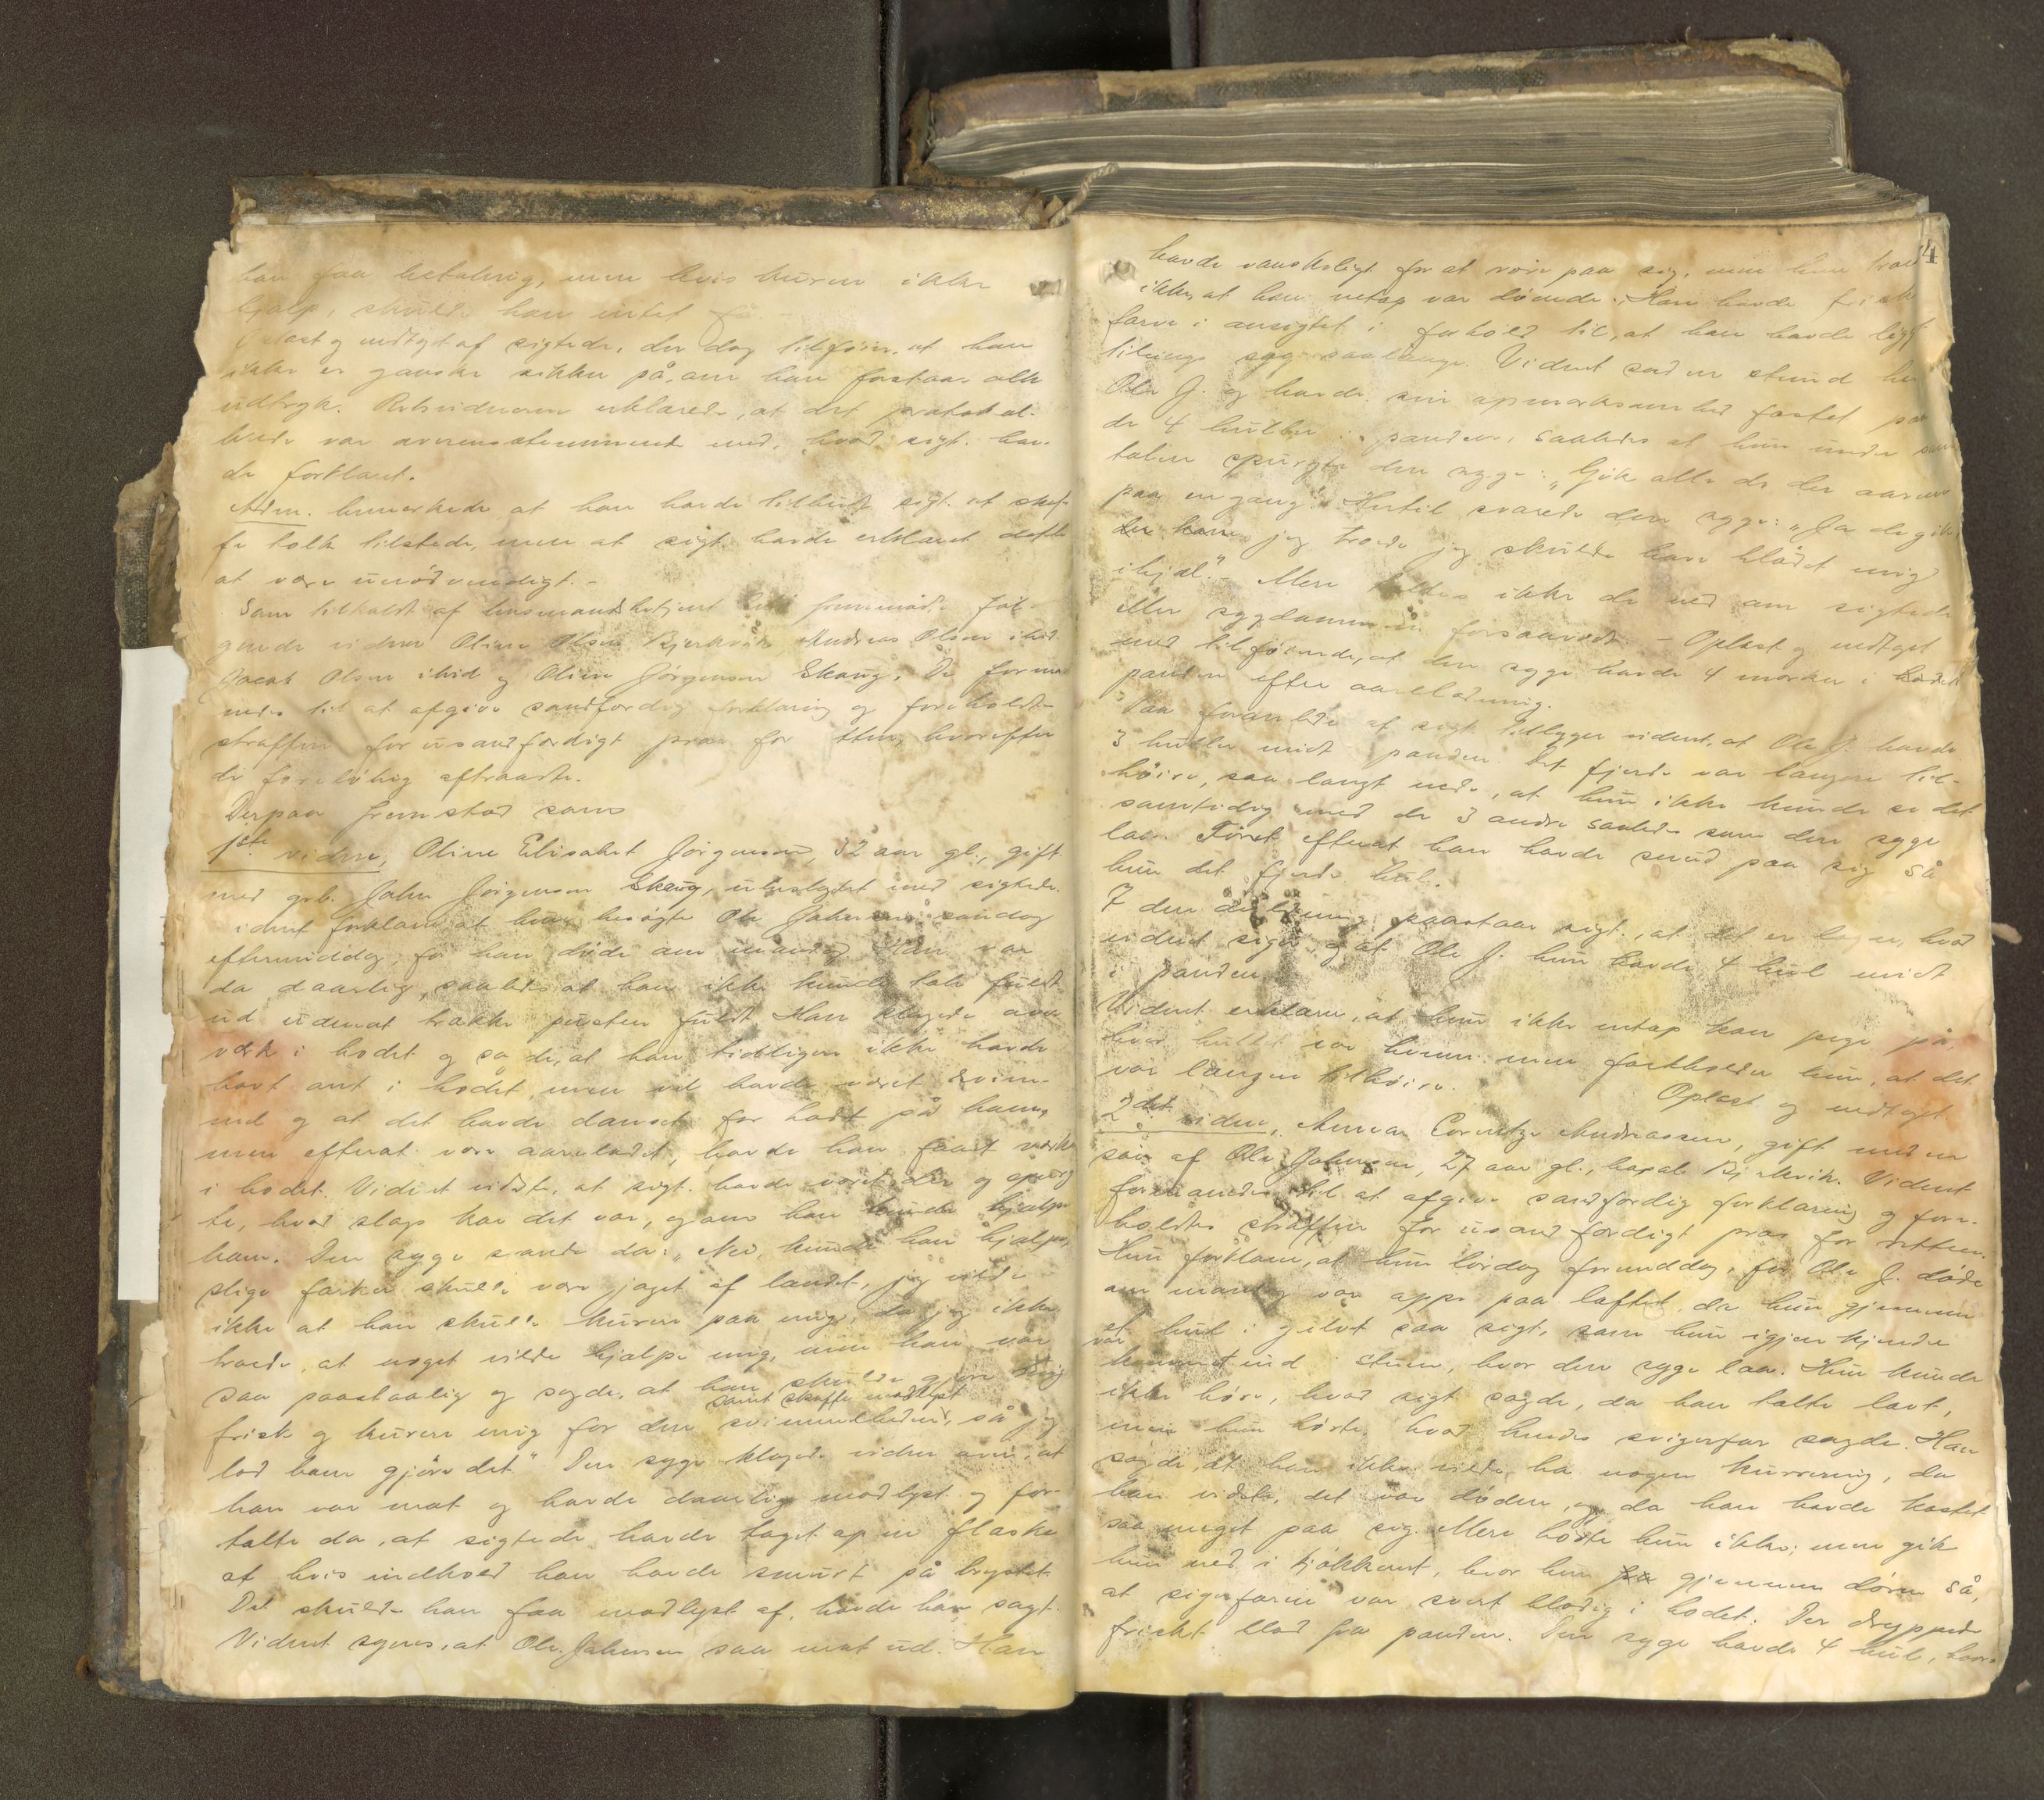 han faa betaling, men hvis kuren ikke
hjalp, skulde han intet få.
Oplæst og vedtaget af sigtede, der dog tilføier, at han
ikke er ganske sikker på, om han forstaar alle
udtryk. Retsvidnerne erklærede, at det protokol-
lerede var overensstemmende med, hvad sigt. hav-
de forklaret.
Adm. bemerkede at han havde tilbudt sigt. at skaf-
fe tolk tilstede, men at sigt. havde erklæret dette
at være unødvendigt. -
Som tilkaldt af lensmandsbetjent fremmødte føl-
gende vidner Oline Olsen Bjerkvik Andreas Olsen ibid
Jacob Olsen ibid og Oline Jørgensen Skaug. De forma-
nedes til at afgive sandfærdig forklaring og foreholdtes
straffen for usandfærdigt prov for retten, hvorefter
de foreløbig aftraadte.
Derpaa fremstod som
1ste vidne, Oline Elisabet Jørgensen, 32 aar gl., gift
med grb. John Jørgensen Skaug, ubeslægtet med sigtede.
Vidnet forklarer at hun besøgte Ole Johnsen søndag
eftermiddag, før han døde om mandag. Han var
da daarlig, saaledes at han ikke kunde tale fuldt
ud uden at trække pusten fuldt. Han klagede over
værk i hodet og sagde, at han tidligere ikke havde
havt ont i hodet, men vel havde været svim-
mel og at det havde danset for hodt på ham,
men efterat være aareladt, havde han faaet værk
i hodet. Vidnet vidste, at sigt. havde været der og spurg-
te, hvad slags kar det var, og om han kunde hjælpe
ham. Den syge svarede da: „Nei, kunde han hjælpe,
slige farker skulde være jaget af landet, jeg vilde
ikke at han skulde kurere paa mig, da jeg ikke
troede, at noget vilde hjælpe mig, men han var
saa paastaalig og sagde, at han skulde gjøre mig
samt skaffe madlyst
frisk og kurere mig for den svimmelheden, så jeg
lod ham gjøre det." Den syge klagede videre over, at
han var mat og havde daarlig madlyst og for-
talte da, at sigtede havde taget op en flaske
af hvis indhold han havde smurt på brystet.
Det skulde han faa madlyst af, havde han sagt.
Vidnet synes, at Ole Johnsen saa mat ud. Han
4
havde vanskeligt for at røre paa sig, men hun troede
ikke, at han netop var døende. Han havde frisk
farve i ansigtet i forhold til, at han havde ligget
tilsengs syg saalænge. Vidnet sad en stund hos
Ole J. og havde sin opmærksomhed fæstet paa
de 4 huller i panden, saaledes at hun under sam-
talen spurgte den syge: „Gik alle de der aarene
paa en gang". Hertil svarede den syge: „Ja de gik
jeg troede jeg skulde have blødet mig
ihjæl." - Mere taltes ikke de ned om sigtede
eller sygdommen forsaavidt. - Oplæst og vedtaget
med tilføiende, at den syge havde 4 mærker i
panden efter aareladning.
Paa foranledn. af sigt. tillægger vidnet, at Ole J. havde
3 huller midt i panden. Det fjerde var længere til-
høire, saa langt nede, at hun ikke kunde se det
samtidig med de 3 andre saaledes som den syge
laa. Først efterat han havde snud paa sig så
hun det fjerde hul.
I den anledning paastaar sigt., at det er løgn, hvad
vidnet siger, og at Ole J. kun havde 4 hul midt
i panden.
Vidnet erklærer, at hun ikke netop kan pege på,
hvor hullet var henne men fastholder hun, at det
var længere tilhøire. Oplæst og vedtaget
2det vidne, Andreassen, gift med en
søn af Ole Johnsen, 27 aar gl., bopæl Bjerkvik. Vidnet
formanedes til at afgive sandfærdig forklaring og fore-
holdtes straffen for usandfærdigt prov for retten.
Hun forklarer, at hun lørdag formiddag, før Ole J. døde
om mandag var oppe paa loftet, da hun gjennem
et hul i gulvet saa sigt., som hun igjenkjender
var
kommet ind i stuen, hvor den syge laa. Hun kunde
ikke høre, hvad sigt. sagde, da han talte lavt,
men hun hørte, hvad hendes svigerfar sagde. Han
sagde, at han ikke vilde ha nogen kurering, da
han vidste, det var døden, og da han havde kostet
saa meget paa sig. Mere hørte hun ikke; men gik
hun ned i kjøkkenet, hvor hun gjennem døren så,
at svigerfaren var svært blodig i hodet. Der dryppede
friskt blod fra panden. Den syge havde 4 hul, hvor-